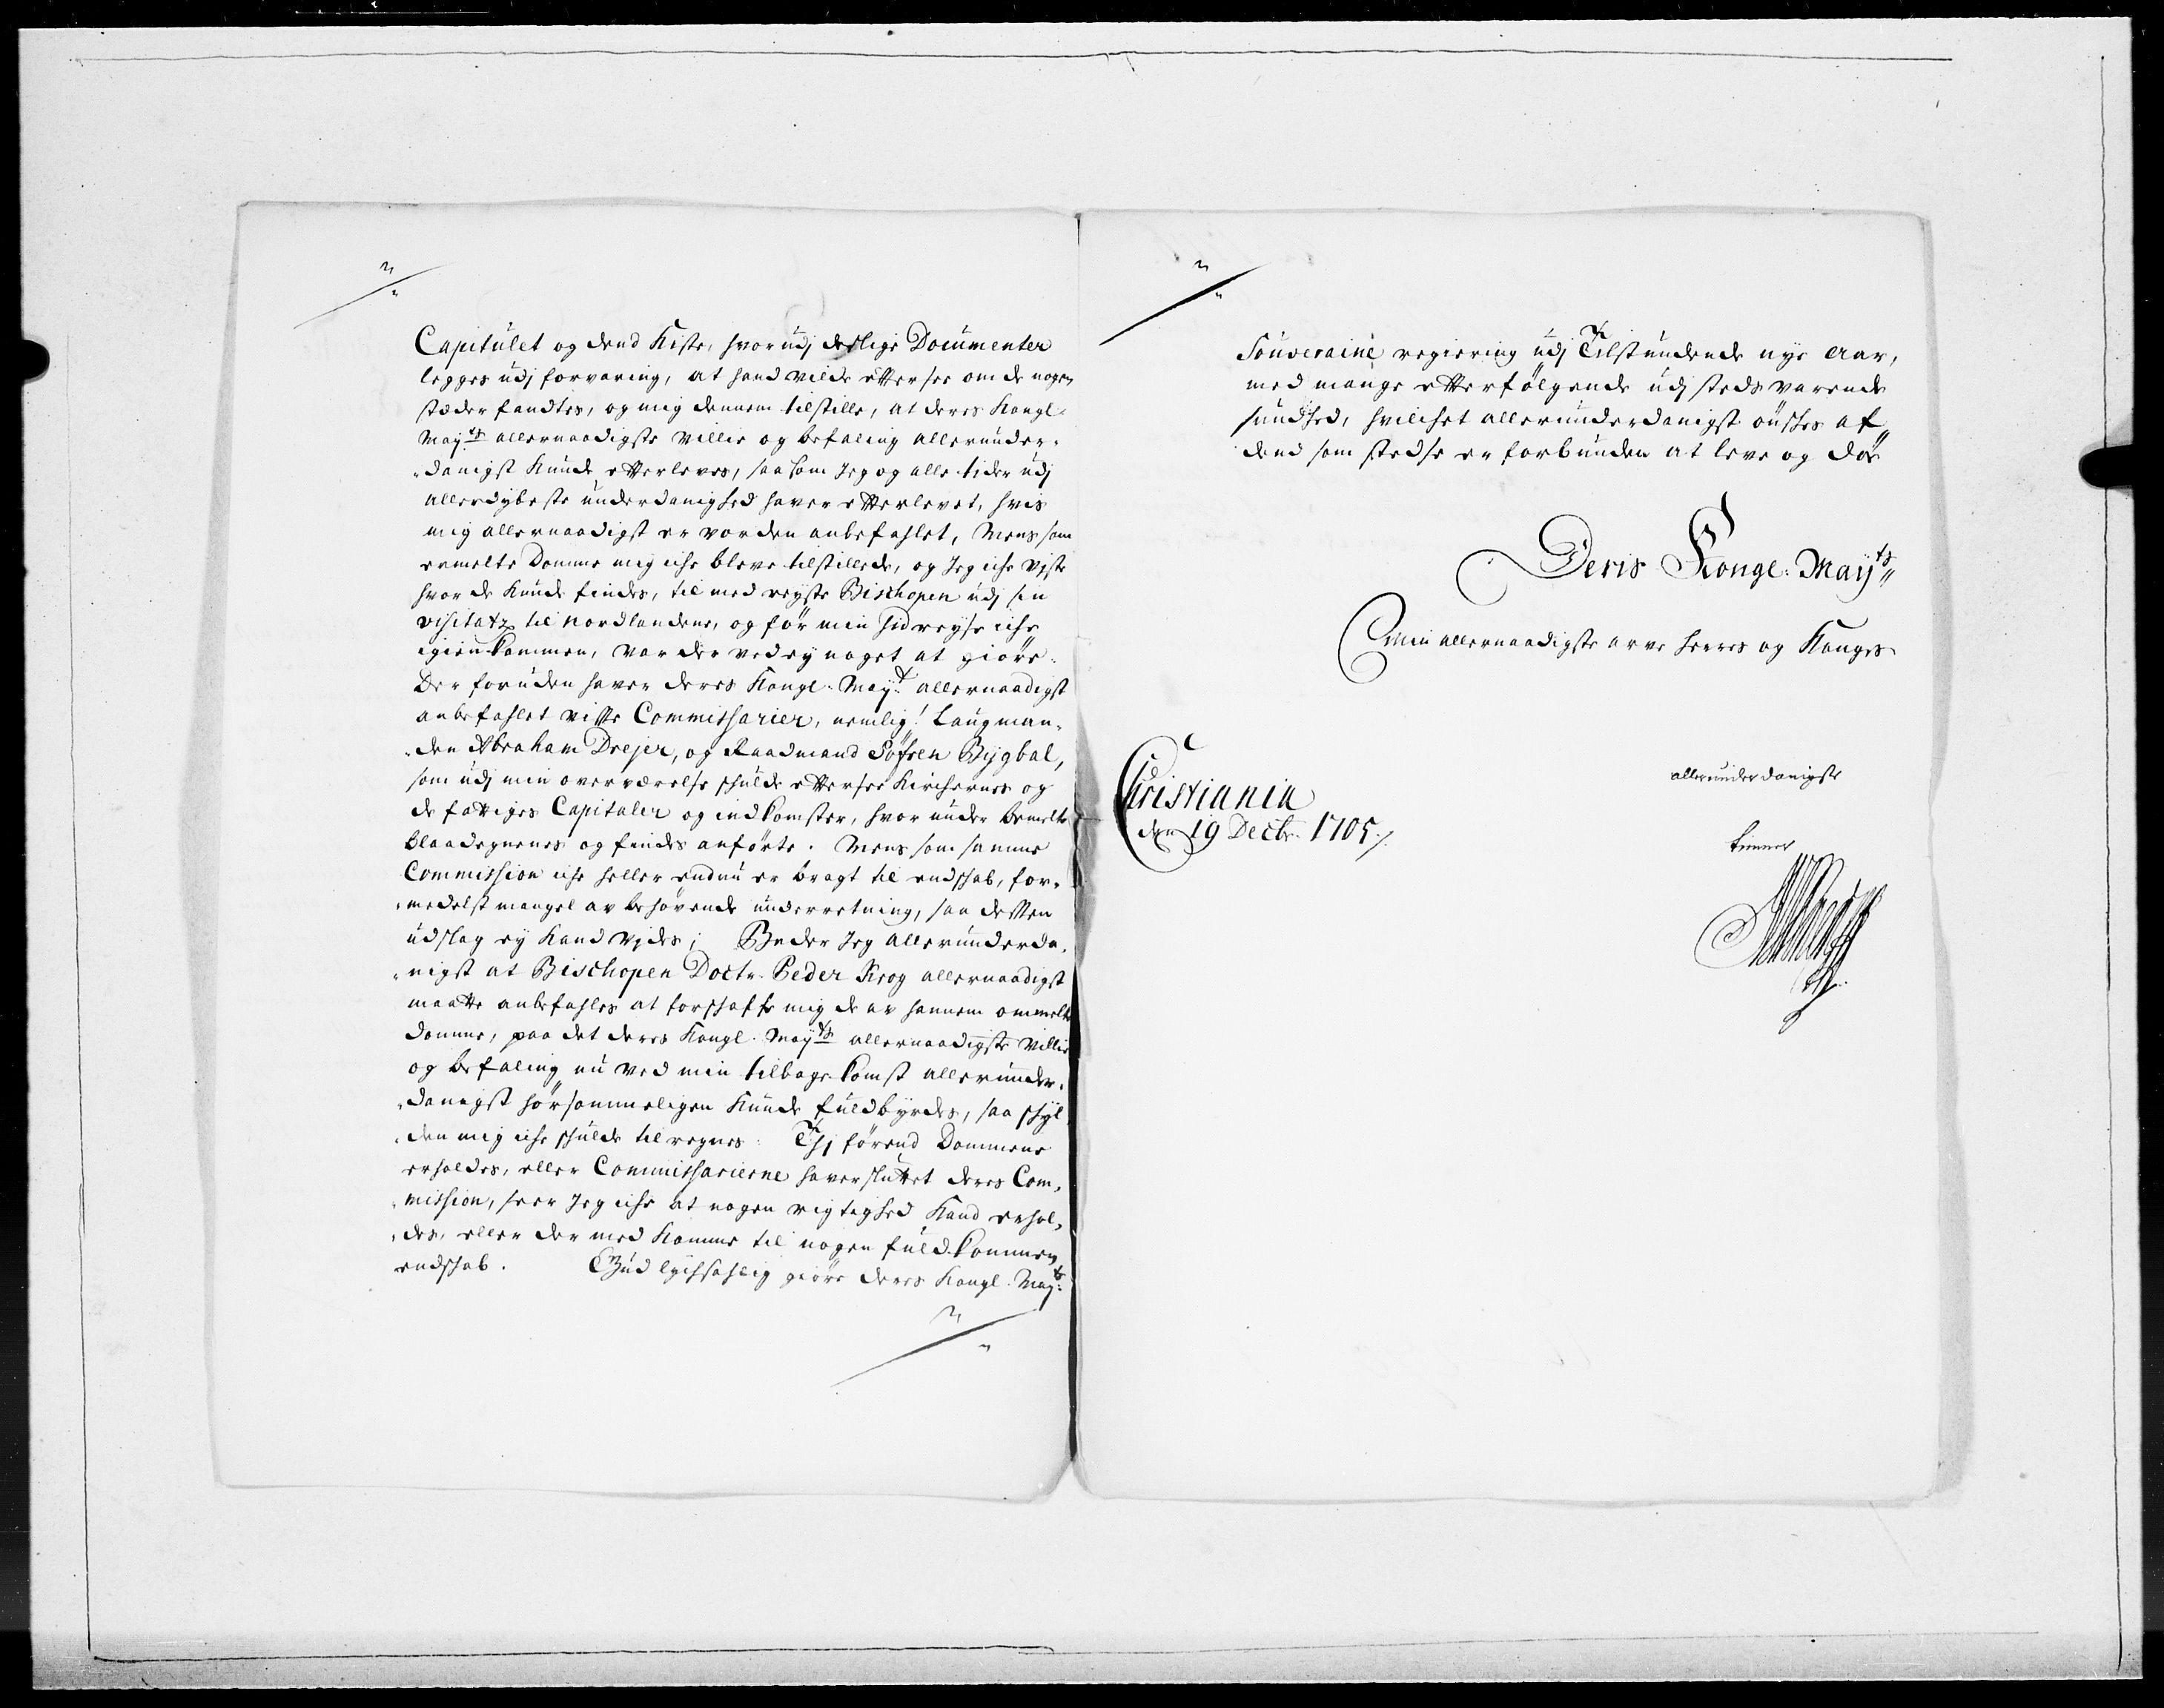 Capitulet og dend Kiste, hvorudj deslige Documenter
legges udj forvaring, at hand vilde etterse om de nogen
stæder fandtes, og mig dennem tilstille, at deres Kongl.
Mayts allernaadigste villie og befaling allerunder-
danigst kunde etterleves, saa som Jeg og alle tider udj
allerdybeste underdanighed haver etterlevet, hvis
mig allernaadigst er vorden anbefahlet, Mens som
ermelte Domme mig iche bleve tilstillede, og Jeg iche viste
hvor de kunde findes, til med reyste Bischopen udj sin
visitatz til Nordlandene, og før min hidreyse iche
igienkommen, var der ved ey noget at giøre.
Der foruden haver deres Kongl. Mayt allernaadigst
anbefahlet visse Commissarier, nemlig: Laugman-
den Abraham Drejer, og Raadmand Søfren Bygbal,
som udj min overværelse schulde etterse Kirchernes og
de fattiges Capitaler og indkomster, hvor under bemelte
blaadegnenes og findes anførte. Mens som samme
Commission iche heller endnu er bragt til endschab, for-
medelst mangel av behøvende underretning, saa dessen
udslag ey kand vides; Beder Jeg allerunderda-
nigst at Bischopen Doctr. Peder Krog allernaadigst
maatte anbefahles at forschaffe mig de av hannem ommelte
domme, paa det deres Kongl. Mayts allernaadigste villie
og befaling nu ved min tilbagekomst allerunder-
danigst hørsommeligen kunde fuldbyrdes, saa schyl-
den mig iche schulde tilregnes: Thj førend Dommene
erholdes, eller Commissarierne haver sluttet deres Com-
mission, seer Jeg iche at nogen rigtighed kand erhol-
des, eller der med komme til nogen fuldkommen
endschab. Gud lychsahlig giøre deres Kongl. Mayts
Souveraine regiering udj Tilstundende nye Aar,
med mange efterfølgende udj steds varende
sundhed, hvilchet allerunderdanigst ønsches af
dend som stedse er forbunden at leve og døe
Deris Kongl: Mayts
Min allernaadigste arve herres og Konges
allerunderdanigste
tienner
Christiania
den 19 Decbr. 1705.